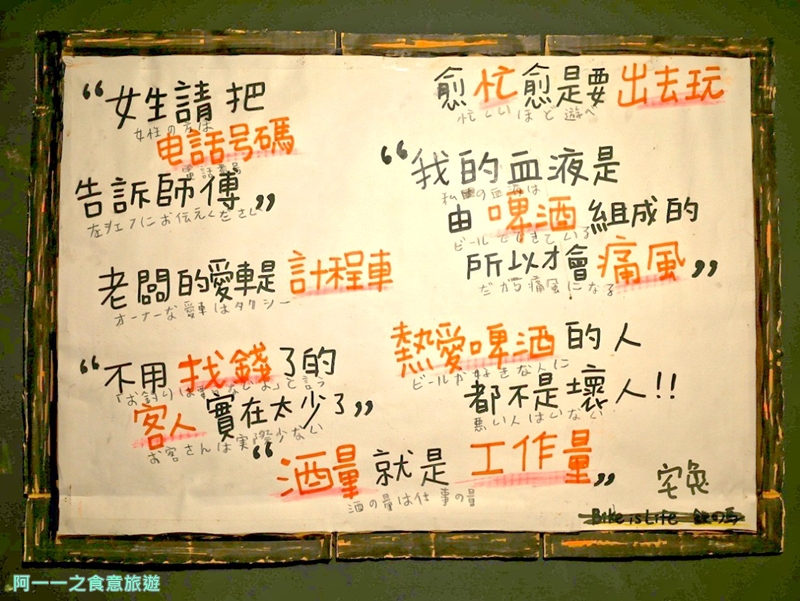 “女生請把
女性の方は
电話号碼
電話番号
告訴師傅”
左シェフにお伝えください
老闆的愛車是 計程車
オーナーな愛車はタクシー
“不用 找錢 了的
「お釣りは要らないよ」と言っ
客人 實在太少了”
お客さんは実際少ない
愈忙愈是要出去玩
忙しいほど遊べ
“我的血液是
私の血液は
由 啤酒 組成的
ビールでできている
所以才會 痛風”
だから痛風になる
熱愛啤酒 的人
ビールが好きな人に
都不是壞人!!
悪い人はいない
“酒量 就是 工作量”
酒の量は仕事の量
宅兔
Bike is Life
阿一一之食意旅遊